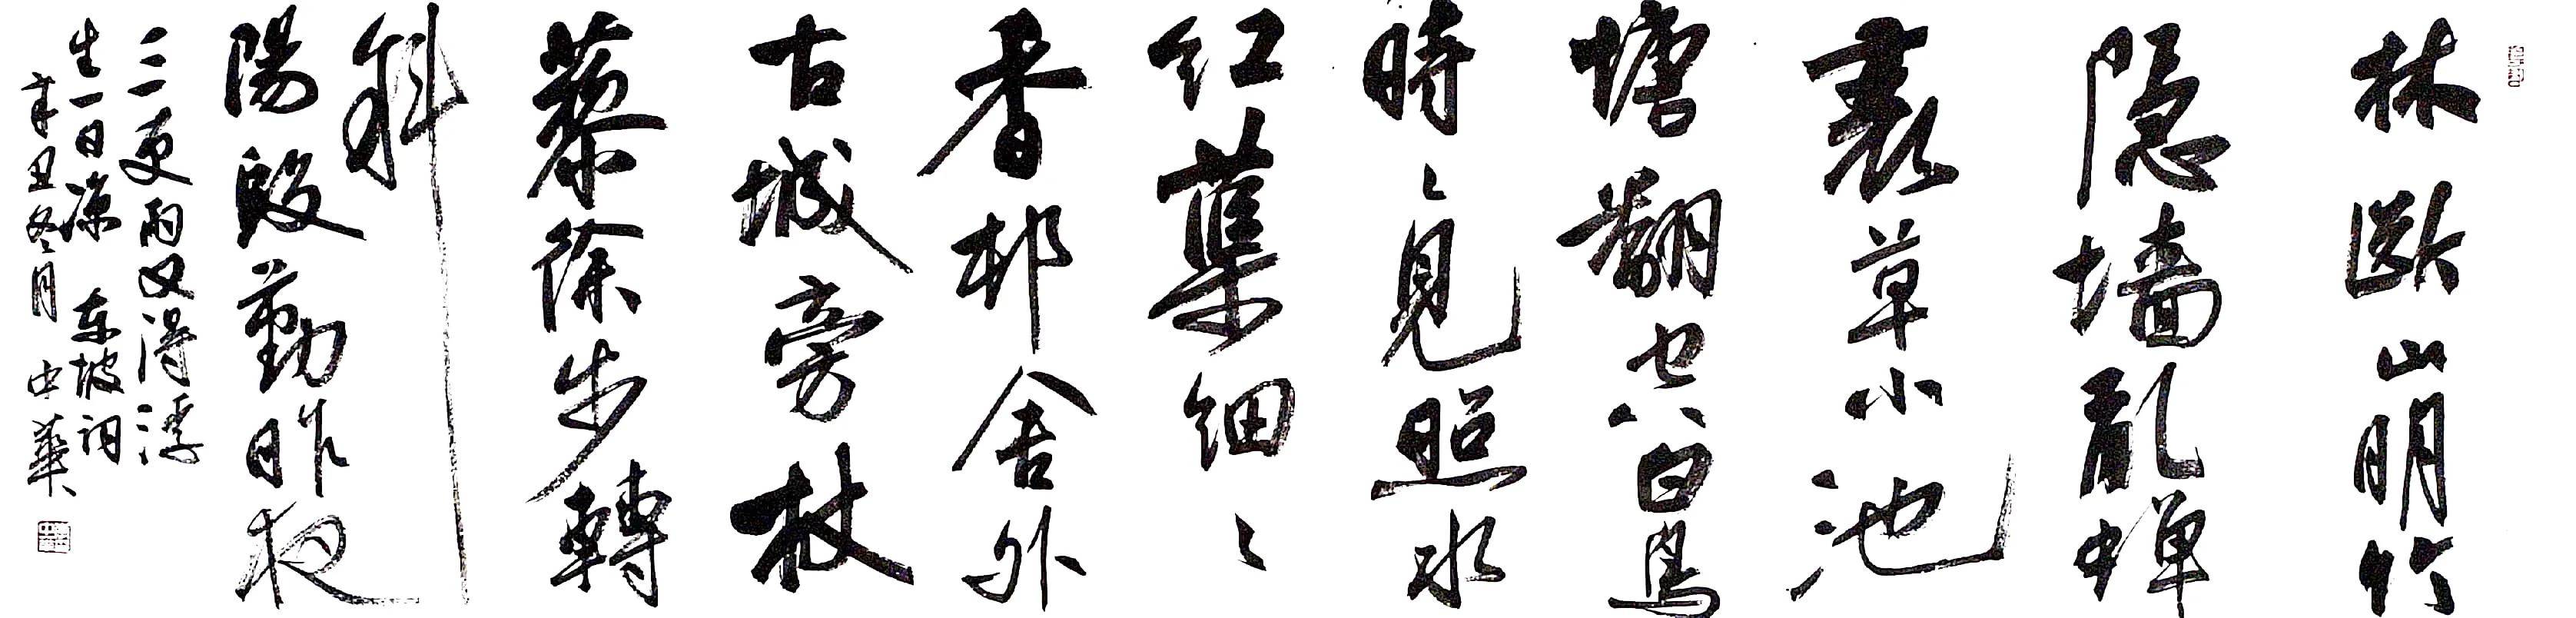 林斷山明竹
隐墙乱蝉
衰草小池
塘翻空白鸟
時〻見照水
红蕖细〻
香邨舍外
古城旁杖
藜徐步轉
斜
陽殷勤昨夜
三更雨又得浮
生一日凉 东坡词
辛丑冬月 中華